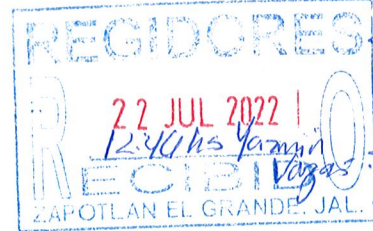 REGIDORES
22 JUL 2022
12:44 hs Yazmin
Vargas.
RECIBIDO
ZAPOTLAN EL GRANDE, JAL.